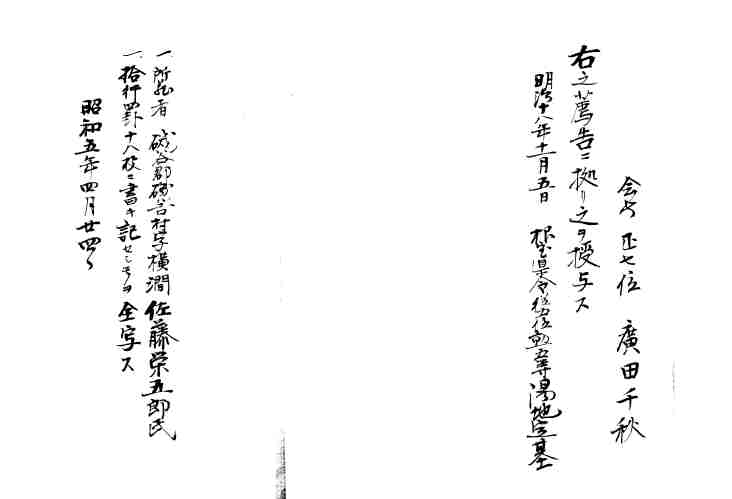 会頭 正七位 廣田千秋
右之薦告ニ拠リ之ヲ授与ス
明治十八年十一月五日 根室県令従五位勲五等湯地定基
一、所蔵者 磯谷郡磯谷村字横澗 佐藤栄五郎氏
一、拾行四罫十八枚ニ書キ記セシモノヲ全写ス
昭和五年四月廿四日